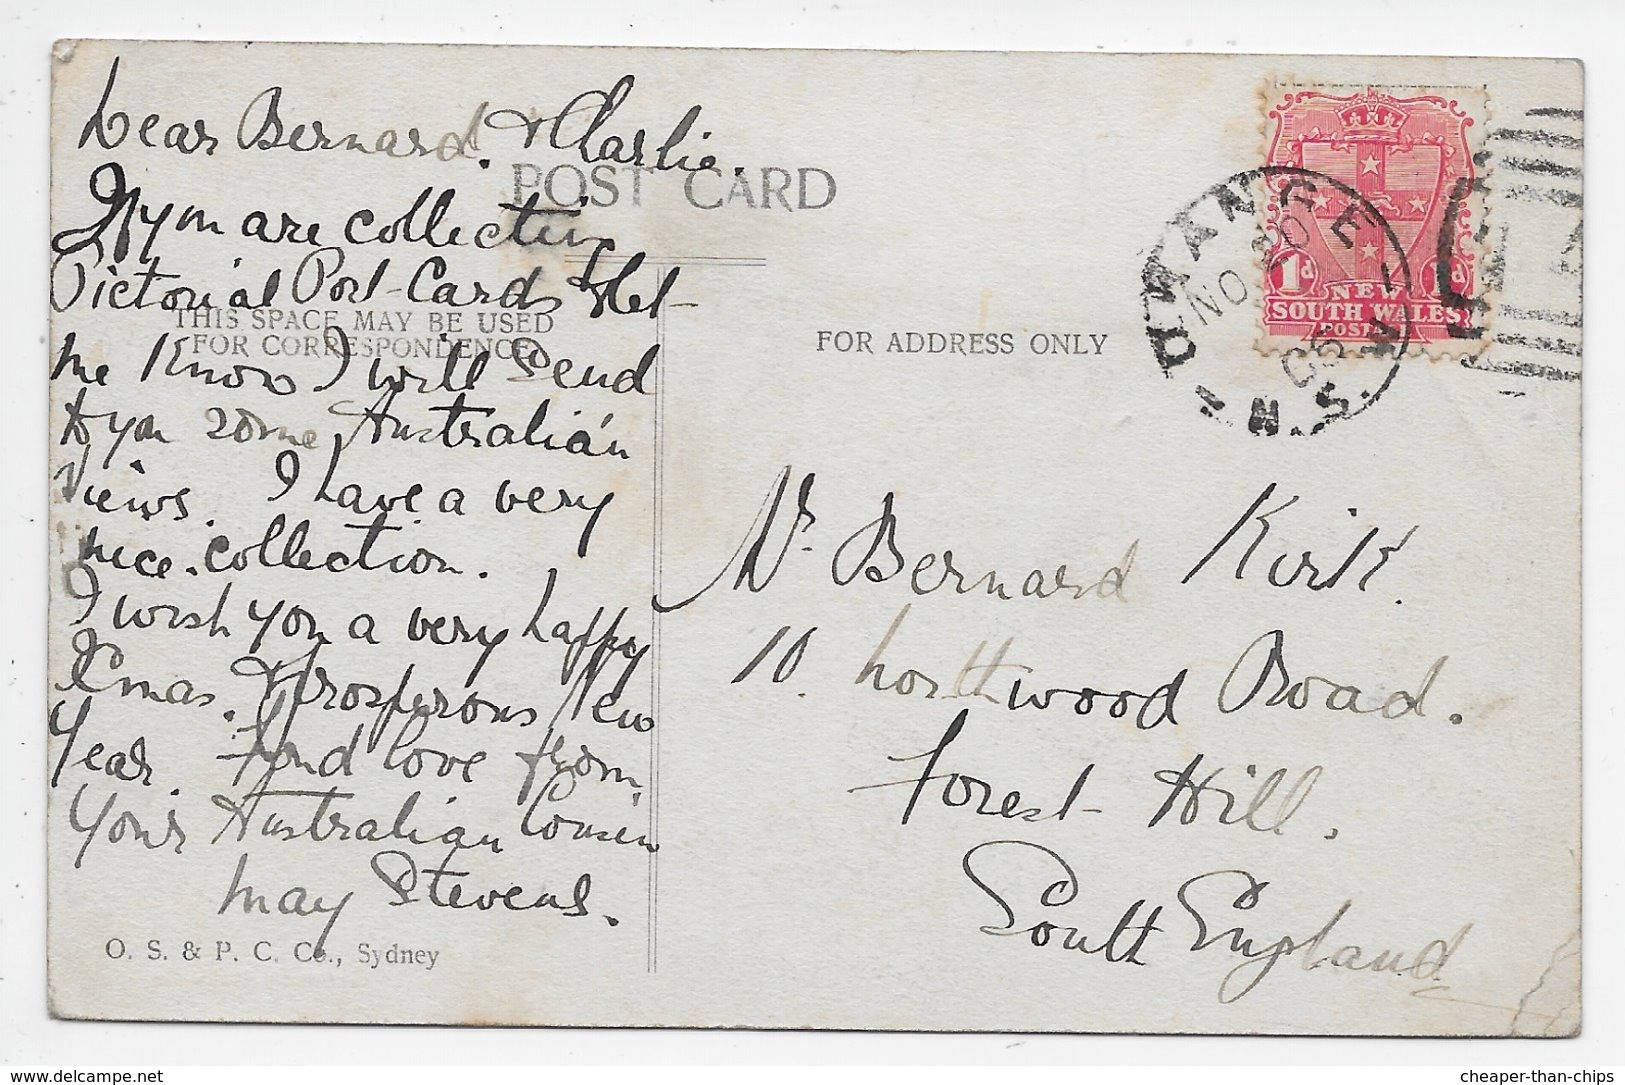 Dear Bernard. & Charlie.
POST CARD
If you are collecting
Pictorial Post-Cards & let-
THIS SPACE MAY BE USED
FOR CORRESPONDENCE
me Know I will Send
to you some Australian
Views. I have a very
nice. collection.
I wish you a very happy
Xmas. & prosperous New
Year. Fond love from
Your Australian Cousin
May Stevens.
O. S. & P. C. Co., Sydney
FOR ADDRESS ONLY
1d 1d
NEW
SOUTH WALES
POSTAGE
ORANGE
NO
N.S.W
Mr. Bernard Kirk.
10. Northwood Road.
Forest Hill.
South England
cheaper-than-chips
www.delcampe.net